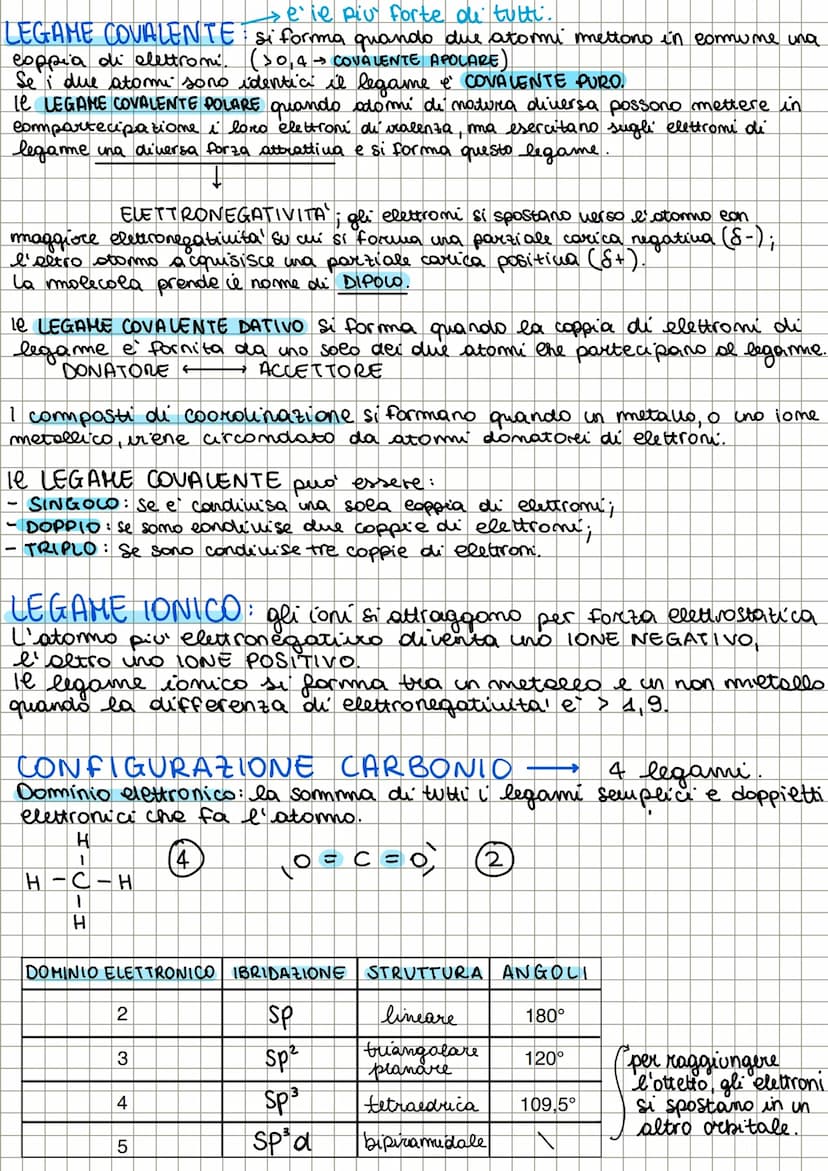 → e' il piu' forte di tutti.
LEGAME COVALENTE: si forma quando due atomi mettono in comune una
coppia di elettroni. (>0,4 → COVALENTE APOLARE)
Se i due atomi sono identici il legame e' COVALENTE PURO.
Il LEGAME COVALENTE POLARE quando atomi di natura diversa possono mettere in
compartecipazione i loro elettroni di valenza, ma esercitano sugli elettroni di
legame una diversa forza attrattiva e si forma questo legame.
↓
ELETTRONEGATIVITA'; gli elettroni si spostano verso l'atomo con
maggiore elettronegativita' su cui si forma una parziale carica negativa (δ-);
l'altro atomo acquisisce una parziale carica positiva (δ+).
La molecola prende il nome di DIPOLO.
Il LEGAME COVALENTE DATIVO si forma quando la coppia di elettroni di
legame e' fornita da uno solo dei due atomi che partecipano al legame.
DONATORE ⟷ ACCETTORE
I composti di coordinazione si formano quando un metallo, o uno ione
metallico, viene circondato da atomi donatori di elettroni.
Il LEGAME COVALENTE puo' essere:
- SINGOLO: se e' condivisa una sola coppia di elettroni;
- DOPPIO: se sono condivise due coppie di elettroni;
- TRIPLO: se sono condivise tre coppie di elettroni.
LEGAME IONICO: gli ioni si attraggono per forza elettrostatica
L'atomo piu' elettronegativo diventa uno IONE NEGATIVO,
l'altro uno IONE POSITIVO.
Il legame ionico si forma tra un metallo e un non metallo
quando la differenza di elettronegativita' e' > 1,9.
CONFIGURAZIONE CARBONIO → 4 legami.
Dominio elettronico: la somma di tutti i legami semplici e doppietti
elettronici che fa l'atomo.
H
H - C - H
H
4
O = C = O
2
DOMINIO ELETTRONICO IBRIDAZIONE STRUTTURA ANGOLI
2 sp lineare 180°
3 sp² triangolare planare 120°
4 sp³ tetraedrica 109,5°
5 sp³d bipiramidale \
per raggiungere
l'ottetto, gli elettroni
si spostano in un
altro orbitale.